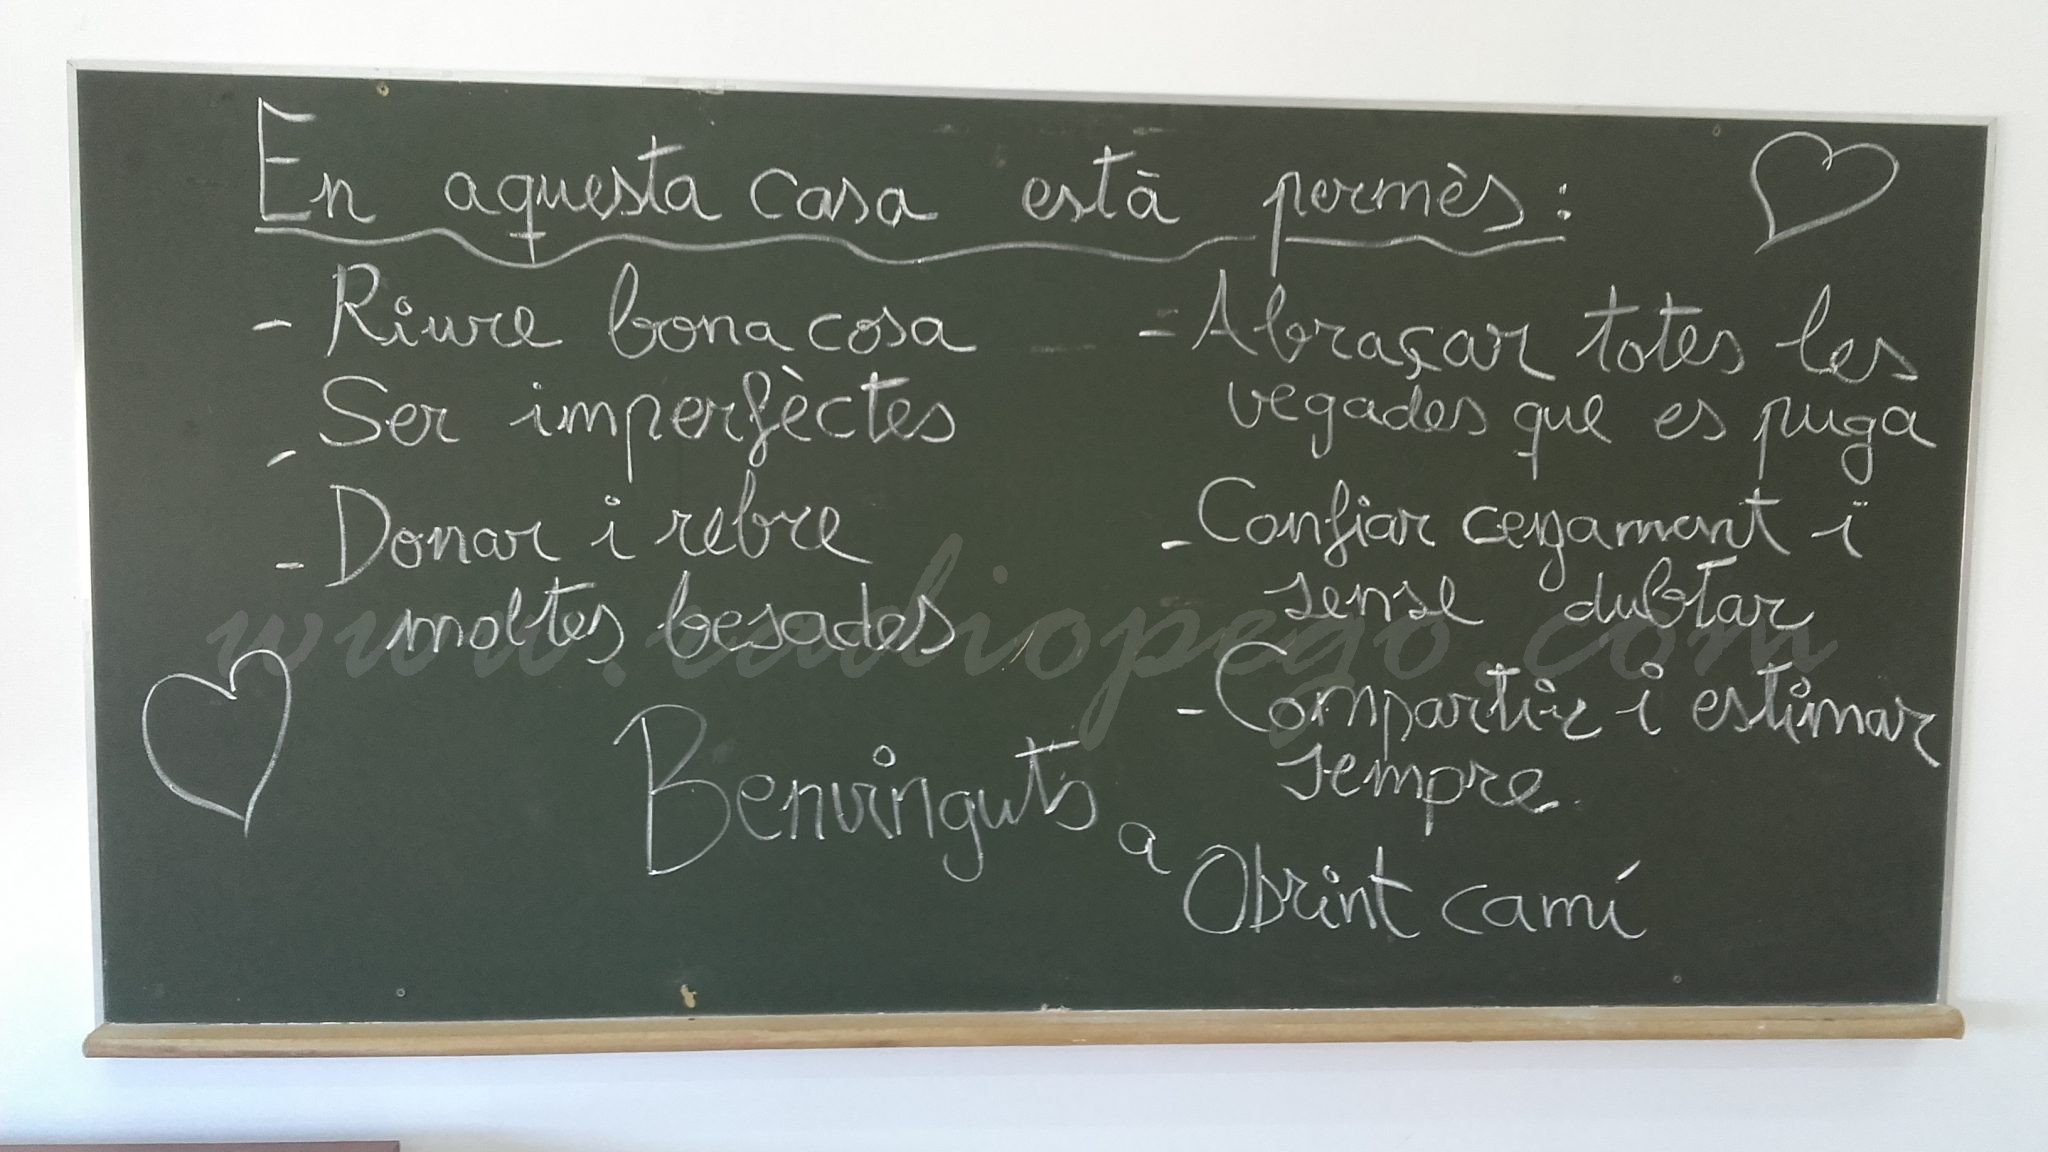 En aquesta casa està permès:
- Riure bona cosa
- Ser imperfèctes
- Donar i rebre
moltes besades
- Abraçar totes les
vegades que es puga
- Confiar cegament i
sense dubtar
- Compartir i estimar
sempre.
Benvinguts a
Obrint camí
www.radiopego.com